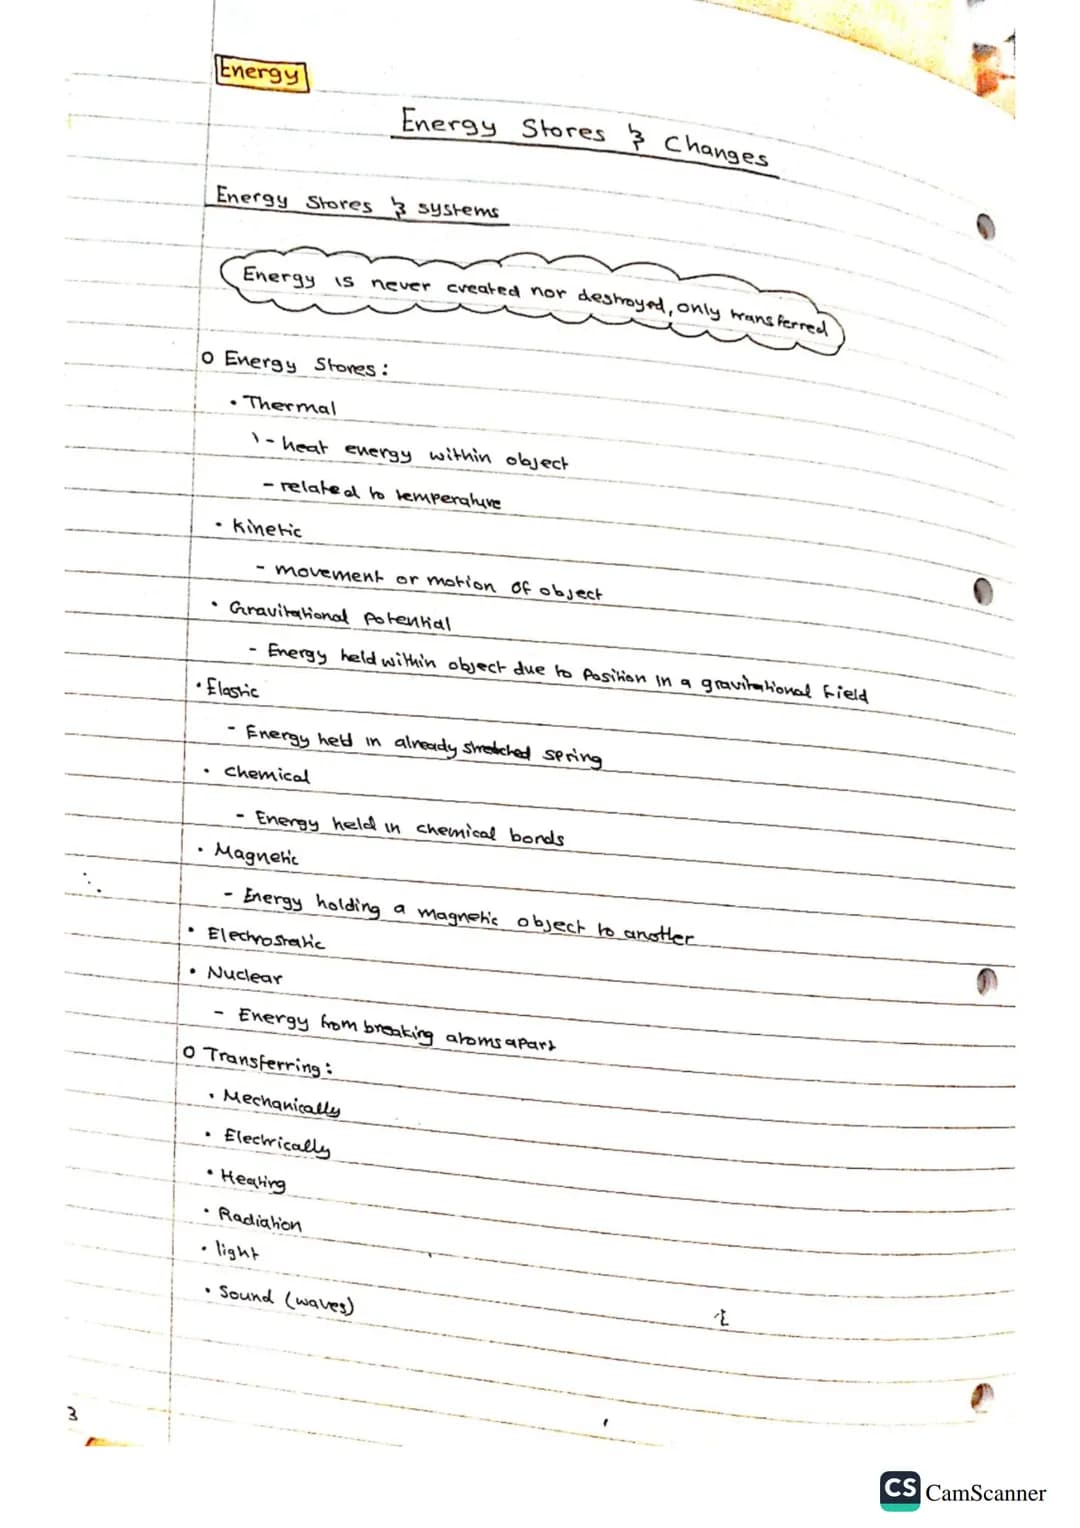 Energy
Energy Stores & Changes
Energy Stores & systems
Energy is never created nor destroyed, only transferred
o Energy Stores:
• Thermal
- heat energy within object
- related to temperature
• Kinetic
- movement or motion of object
• Gravitational Potential
- Energy held within object due to Position in a gravitational field
• Elastic
- Energy held in already stretched spring
• chemical
- Energy held in chemical bonds
• Magnetic
- Energy holding a magnetic object to another
• Electrostatic
• Nuclear
- Energy from breaking atoms apart
o Transferring:
• Mechanically
• Electrically
• Heating
• Radiation
• light
• Sound (waves)
3
CS CamScanner